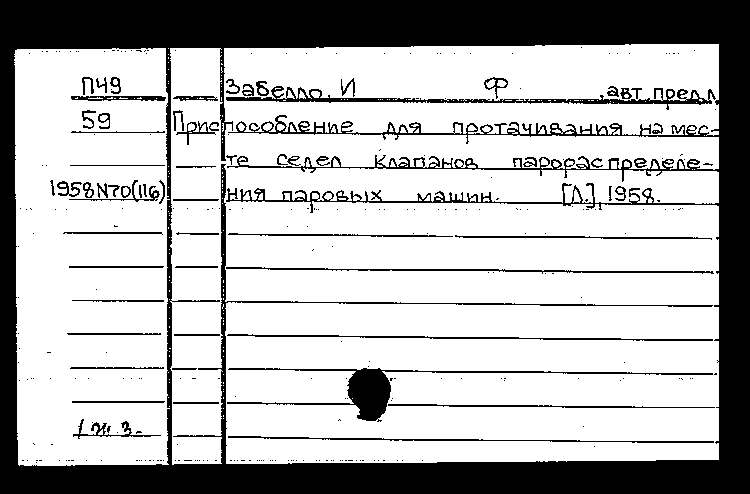 П49 Забелло, И Ф , авт. предл
59 Приспособление для протачивания на мес-
те седел клапанов парораспределе-
1958N70(116) ния паровых машин. [Л.], 1958.